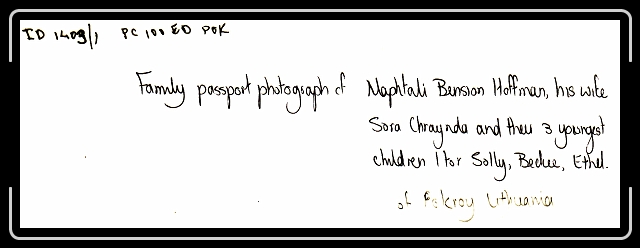 ID 1409/1, PC 100 ED POK
Family passport photograph of Naphtali Bension Hoffman, his wife
Sora Chraynda and their 3 youngest
children l to r Solly, Beckie, Ethel.
of Pokroy Lithuania